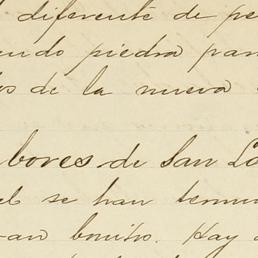 diferente de pe
endo piedra par
os de la nueva
bores de San Lo
el se han termi
ran bonito. Hay